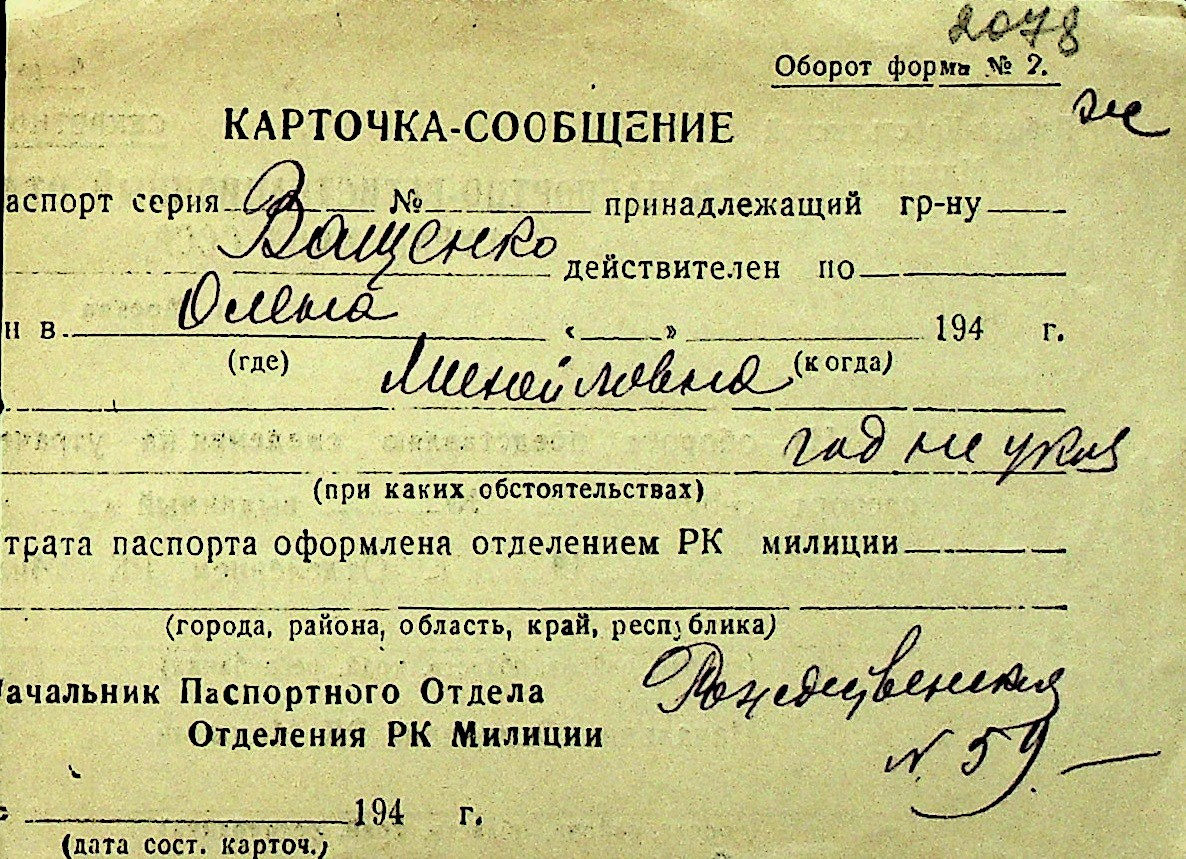 2078
Оборот форма № 2.
же
КАРТОЧКА-СООБЩЕНИЕ
аспорт серия № принадлежащий гр-ну
Ващенко
действителен по
Олена
н в « » 194 г.
(где) (когда)
Михайловна
год не указ
(при каких обстоятельствах)
трата паспорта оформлена отделением РК милиции
(города, района, область, край, республика)
Рождественская
Начальник Паспортного Отдела
Отделения РК Милиции
N 59
194 г.
(дата сост. карточ.)